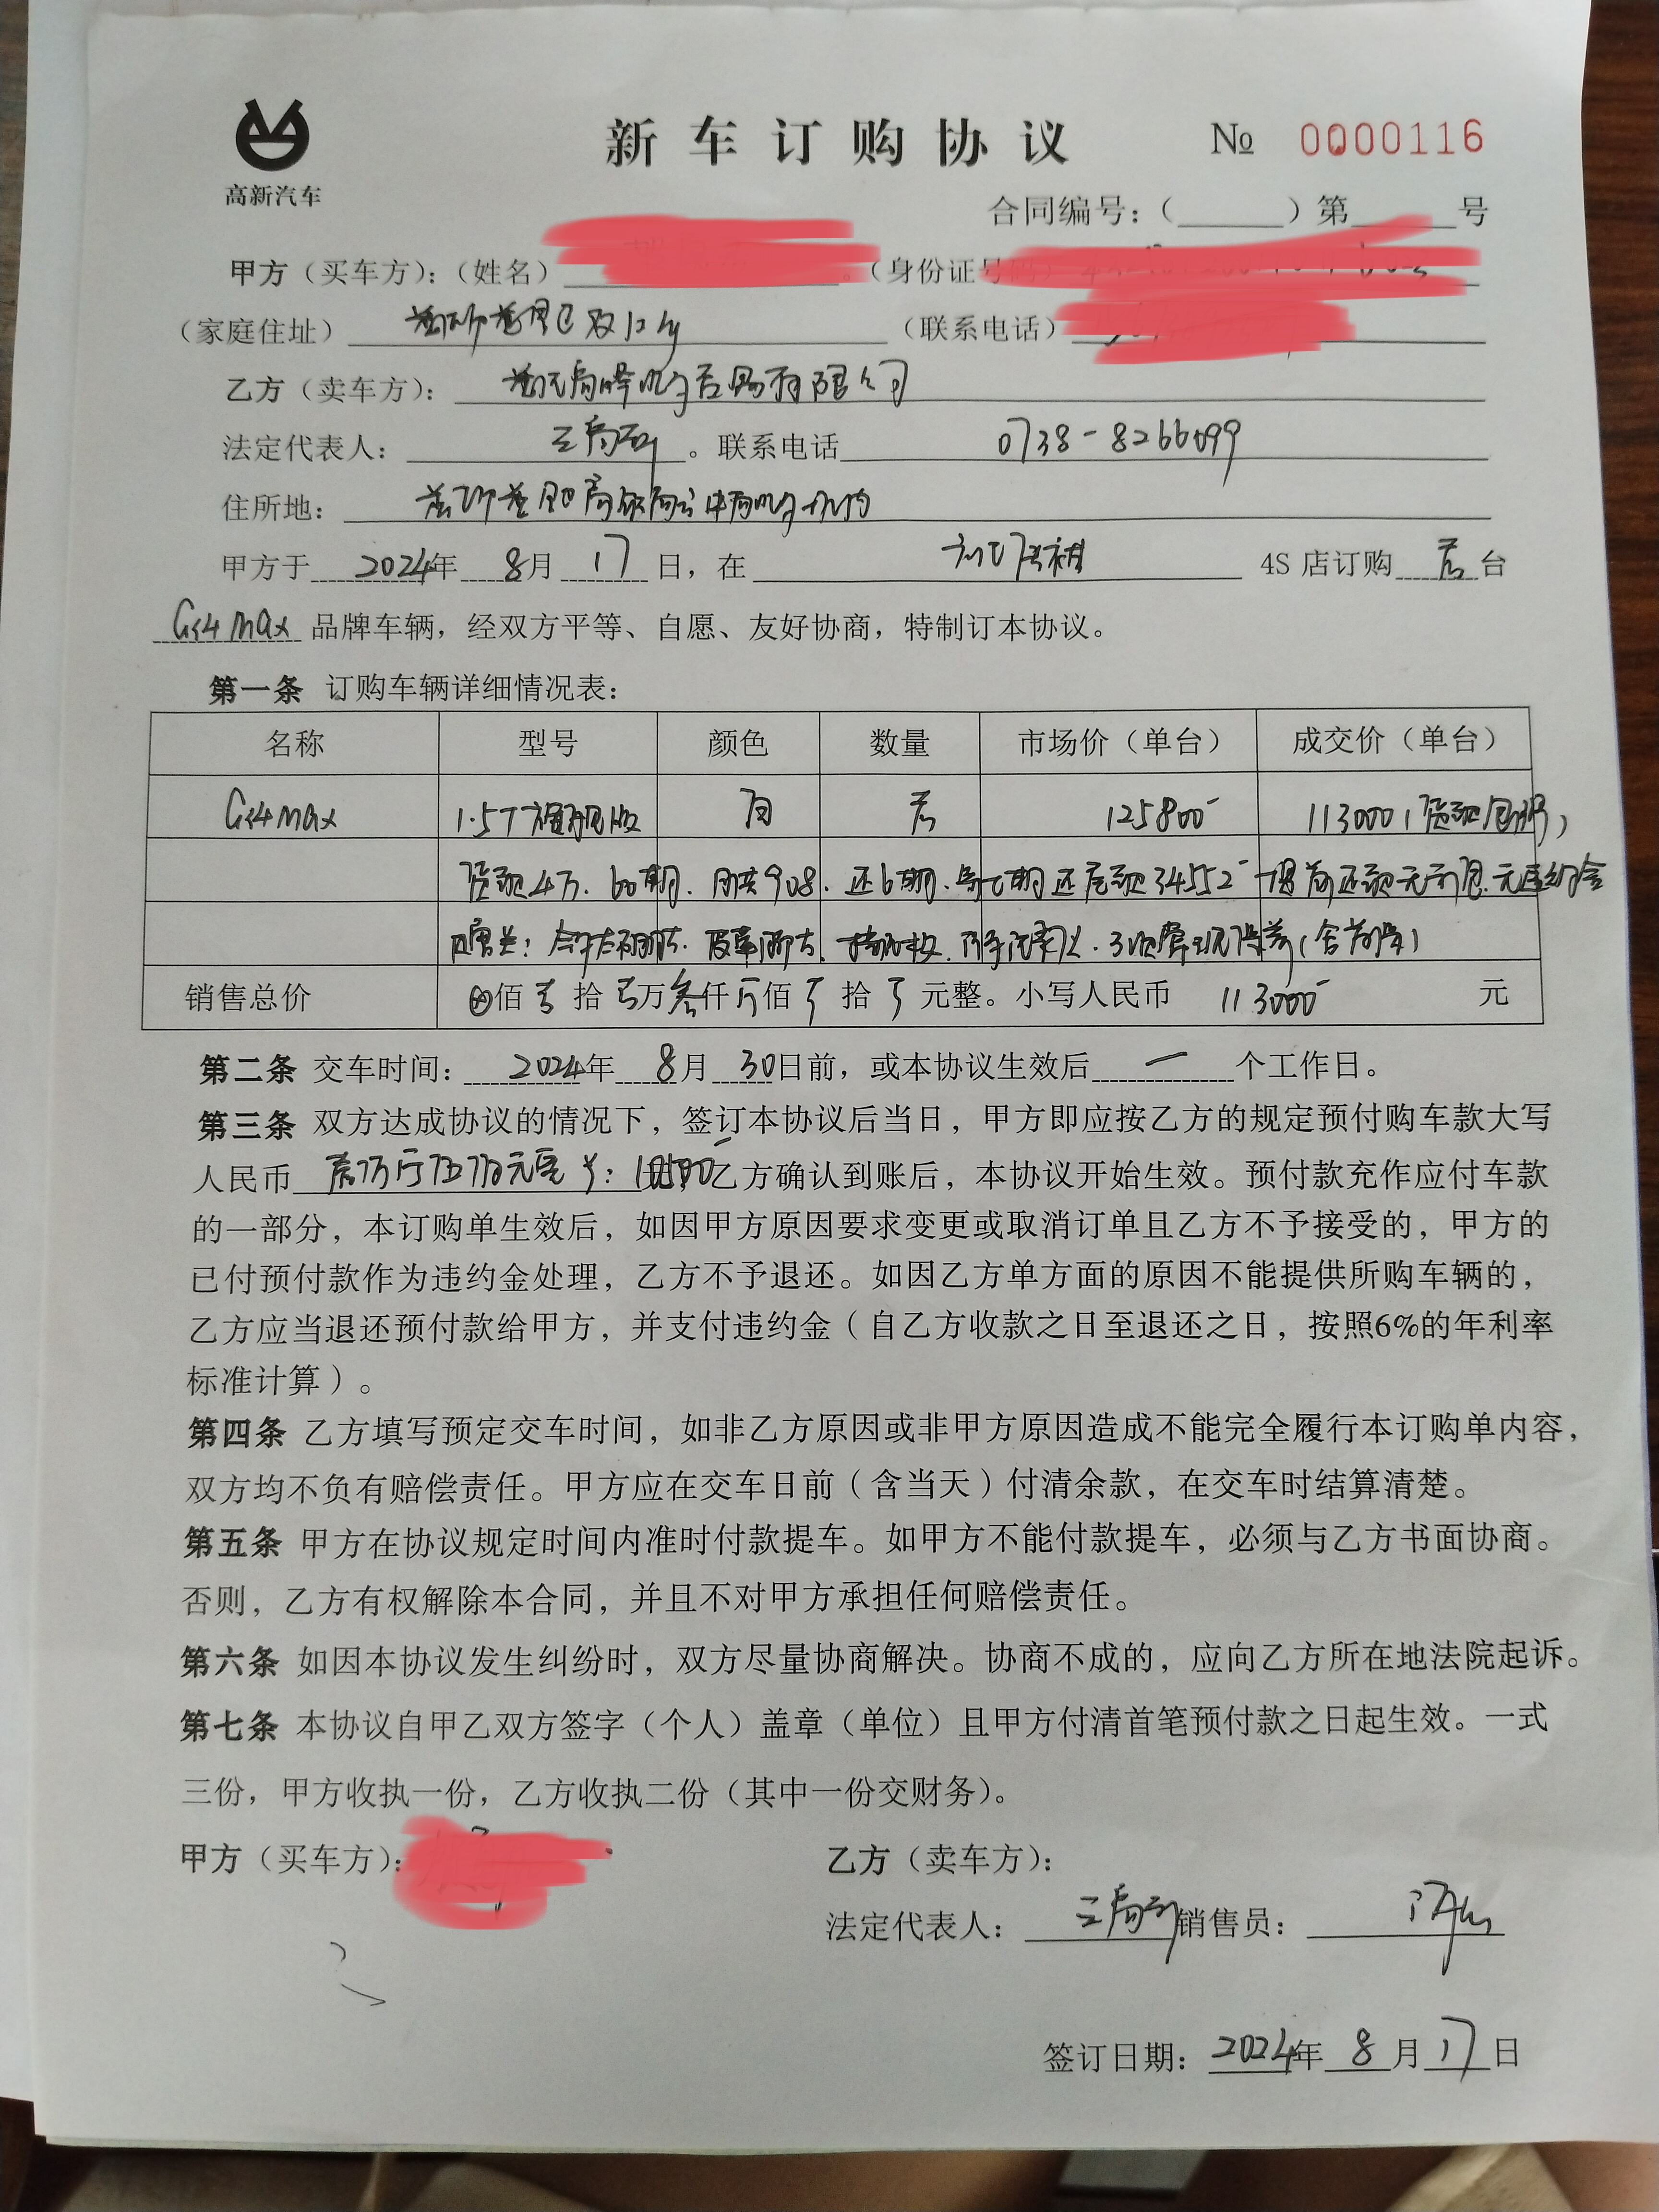 高新汽车
新车订购协议
№ 0000116
合同编号：（______）第______号
甲方（买车方）：（姓名）。（身份证号
（家庭住址）（联系电话）
乙方（卖车方）：有限公司
法定代表人：。联系电话 0738-8266099
住所地：
甲方于 2024年 8月 17 日，在 4S 店订购 壹 台
Gs4 max 品牌车辆，经双方平等、自愿、友好协商，特制订本协议。
第一条 订购车辆详细情况表：
名称 型号 颜色 数量 市场价（单台） 成交价（单台）
Gs4 max 1.5T 旗舰版 白 壹 125800 113000
贷款4万、60期、月供908、还6期、第七期还尾款34552 提前还款无利息、无违约金
销售总价 ⊗佰 壹 拾 壹万 叁仟 零佰 零 拾 零 元整。小写人民币 113000 元
第二条 交车时间： 2024年 8月 30日前，或本协议生效后 一 个工作日。
第三条 双方达成协议的情况下，签订本协议后当日，甲方即应按乙方的规定预付购车款大写
人民币 壹万零伍佰元 ¥：10500 乙方确认到账后，本协议开始生效。预付款充作应付车款
的一部分，本订购单生效后，如因甲方原因要求变更或取消订单且乙方不予接受的，甲方的
已付预付款作为违约金处理，乙方不予退还。如因乙方单方面的原因不能提供所购车辆的，
乙方应当退还预付款给甲方，并支付违约金（自乙方收款之日至退还之日，按照6%的年利率
标准计算）。
第四条 乙方填写预定交车时间，如非乙方原因或非甲方原因造成不能完全履行本订购单内容，
双方均不负有赔偿责任。甲方应在交车日前（含当天）付清余款，在交车时结算清楚。
第五条 甲方在协议规定时间内准时付款提车。如甲方不能付款提车，必须与乙方书面协商。
否则，乙方有权解除本合同，并且不对甲方承担任何赔偿责任。
第六条 如因本协议发生纠纷时，双方尽量协商解决。协商不成的，应向乙方所在地法院起诉。
第七条 本协议自甲乙双方签字（个人）盖章（单位）且甲方付清首笔预付款之日起生效。一式
三份，甲方收执一份，乙方收执二份（其中一份交财务）。
甲方（买车方）： 乙方（卖车方）：
法定代表人： 销售员：
签订日期：2024年 8 月 17 日